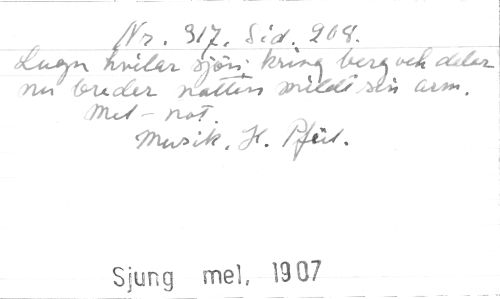 Nr. 317. Sid. 208.
Lugn hvilar sjön kring berg och dalar
nu breder natten mildt sin arm.
Mel - not.
Musik. H. Pfeil.
Sjung mel, 1907